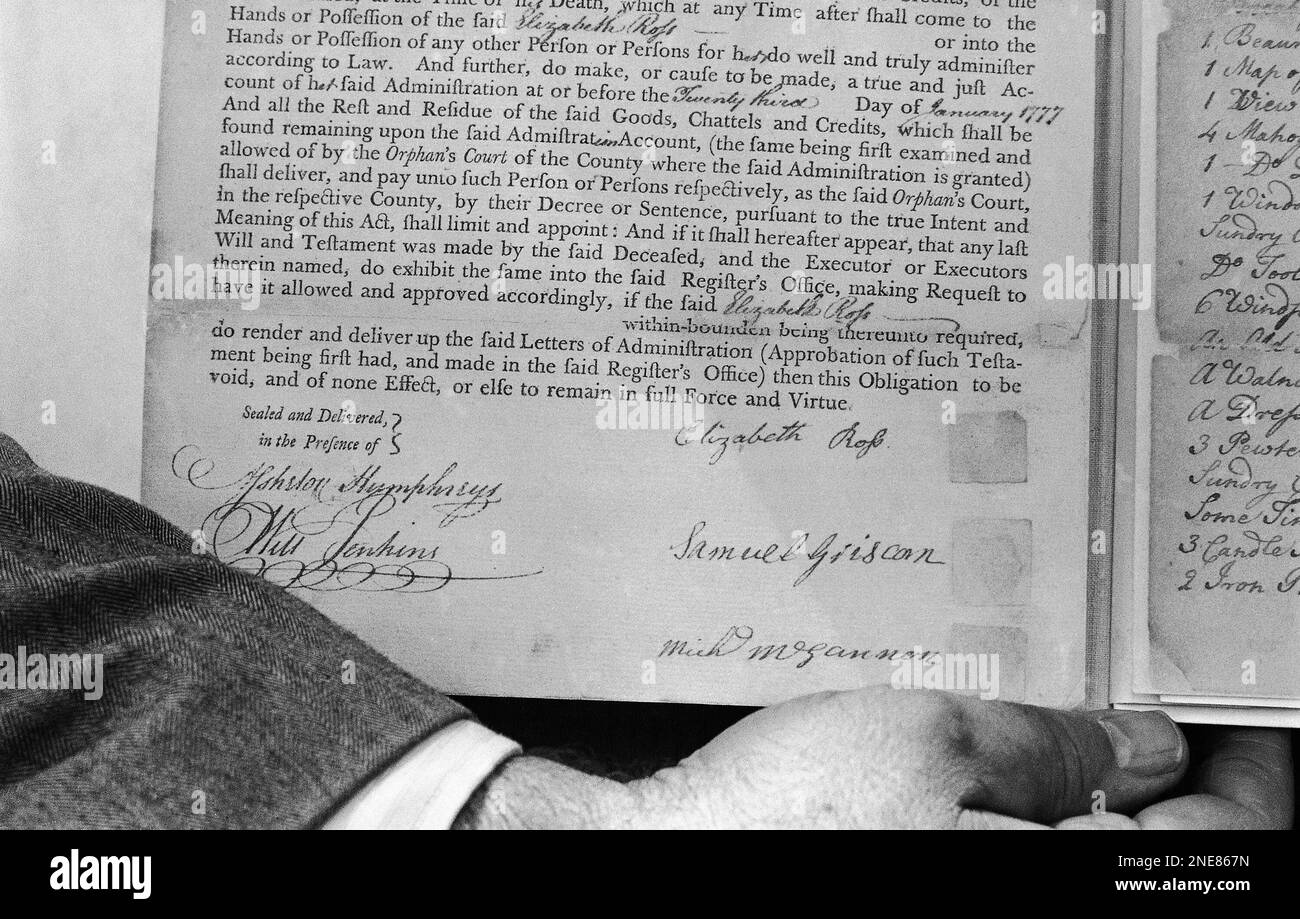 Death, which at any Time after shall come to the
Hands or Poſſeſſion of the ſaid Elizabeth Roſs or into the
Hands or Poſſeſſion of any other Perſon or Perſons for her do well and truly adminiſter
according to Law. And further, do make, or cauſe to be made, a true and juſt Ac-
count of her ſaid Adminiſtration at or before the Twenty third Day of January 1777
And all the Reſt and Reſidue of the ſaid Goods, Chattels and Credits, which ſhall be
found remaining upon the ſaid Admiſtration Account, (the ſame being firſt examined and
allowed of by the Orphan's Court of the County where the ſaid Adminiſtration is granted)
ſhall deliver, and pay unto ſuch Perſon or Perſons reſpectively, as the ſaid Orphan's Court,
in the reſpective County, by their Decree or Sentence, purſuant to the true Intent and
Meaning of this Act, ſhall limit and appoint: And if it ſhall hereafter appear, that any laſt
Will and Teſtament was made by the ſaid Deceaſed, and the Executor or Executors
therein named, do exhibit the ſame into the ſaid Regiſter's Office, making Requeſt to
have it allowed and approved accordingly, if the ſaid Elizabeth Roſs
within-bounden being thereunto required,
do render and deliver up the ſaid Letters of Adminiſtration (Approbation of ſuch Teſta-
ment being firſt had, and made in the ſaid Regiſter's Office) then this Obligation to be
void, and of none Effect, or elſe to remain in full Force and Virtue.
Sealed and Delivered,
in the Preſence of
Elizabeth Roſs.
Humphreys
Will Jenkins
Samuel Griscom
Mich McGannon
1
1 Map
1 View
4
1 Do
1
Sundry
Do
6
A
A
3
Sundry
Some
3 Candle
2 Iron
alamy
Image ID: 2NE867N
www.alamy.com